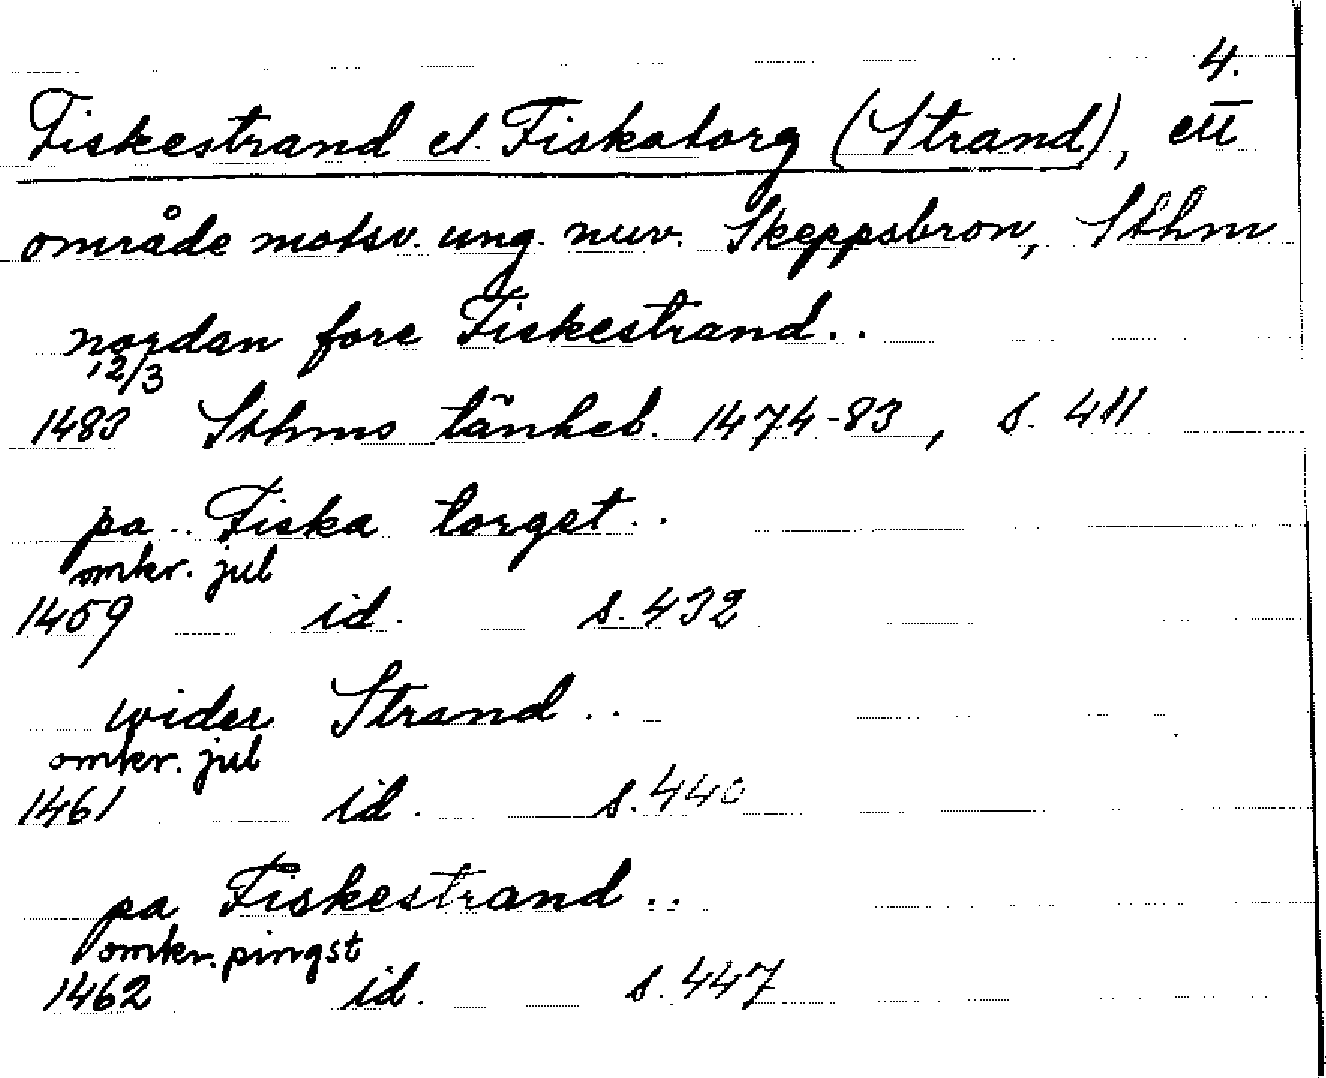 4.
Fiskestrand el. Fiskatorg (Strand), ett
område motsv. ung. nuv. Skeppsbron, Sthm
nordan fore Fiskestrand..
12/3
1483 Sthms tänkeb. 1474-83, s. 411
pa .. Fiska torget..
omkr. jul
1459 id. s. 432
wider Strand..
omkr. jul
1461 id. s. 440
pa Fiskestrand..
omkr. pingst
1462 id. s. 447